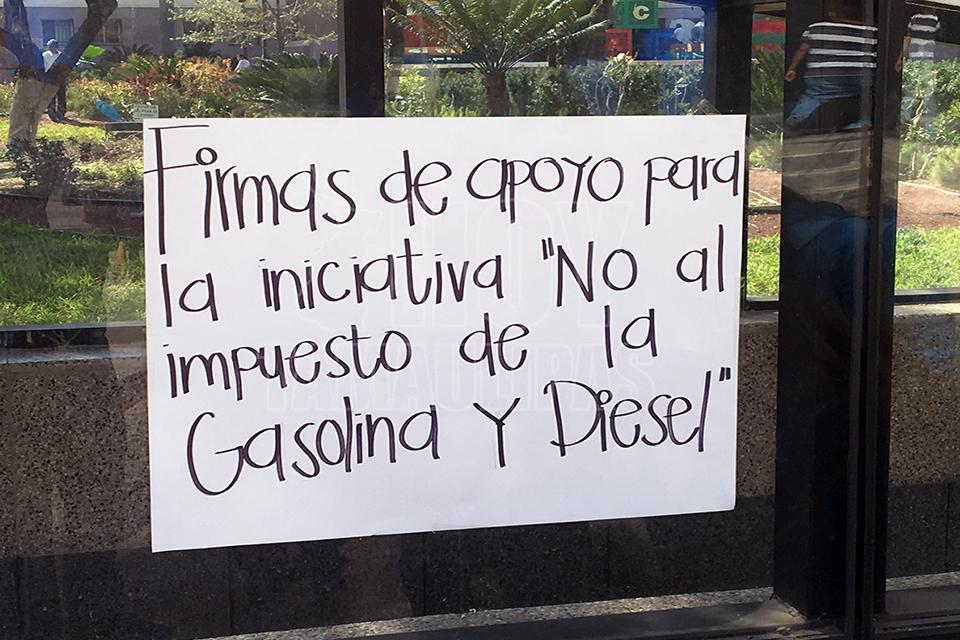 C
Firmas de apoyo para
la iniciativa "No al
impuesto de la
Gasolina Y Diesel"
HOY
TAMAULIPAS